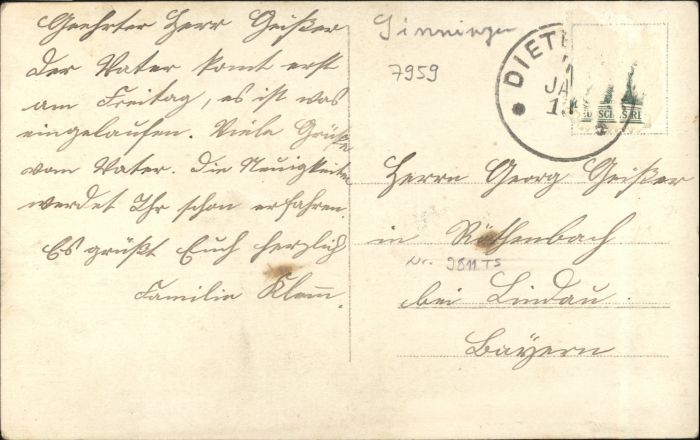 Geehrter Herr Geißer
Der Vater komt erst
am Freitag, es ist was
eingelaufen. Viele Grüße
vom Vater. Die Neuigkeiten
werdet Ihr schon erfahren.
Es grüßt Euch herzlich
Familie Klamm.
Sinningen
7959
DIETE
JA
13
Herrn Georg Geißer
in Röthenbach
Nr. 9811 TS
bei Lindau.
Bayern